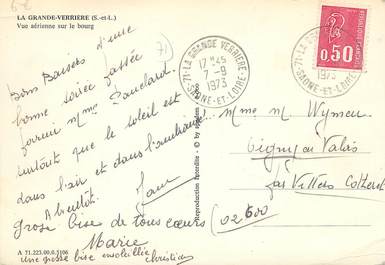 LA GRANDE-VERRIÈRE (S.-et-L.)
Vue aérienne sur le bourg
71
Bons Baisers d'une
bonne soirée passée
surtout que le soleil est
dans l'air et dans l'ambiance
A bientôt.
grosse bise de tous cœurs
Marie
une grosse bise ensoleillée Christian
A 71.223.00.0.5106
Reproduction interdite - © by
71 - LA GRANDE VERRIERE
17 H 45
7 - 9
1973
SAONE-ET-LOIRE
0,50
1973
SAONE-ET-LOIRE
Mme M Wymeu
par Villers Cotteret
02600